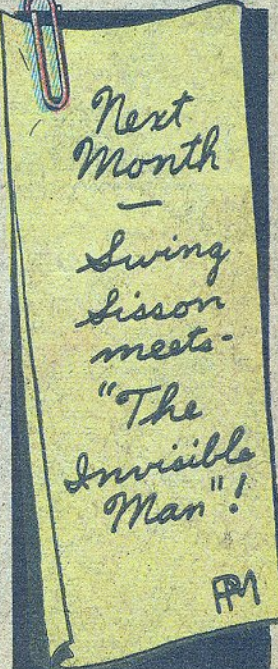 Next
Month
—
Swing
Sisson
meets-
"The
Invisible
Man"!